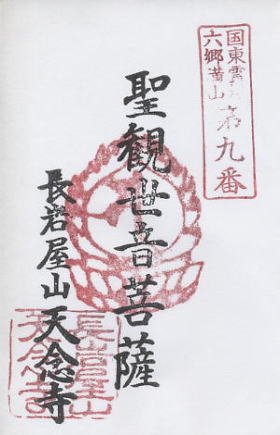 国東霊
六郷満山
第九番
聖観世音菩薩
長岩屋山天念寺
長岩屋山
天念寺